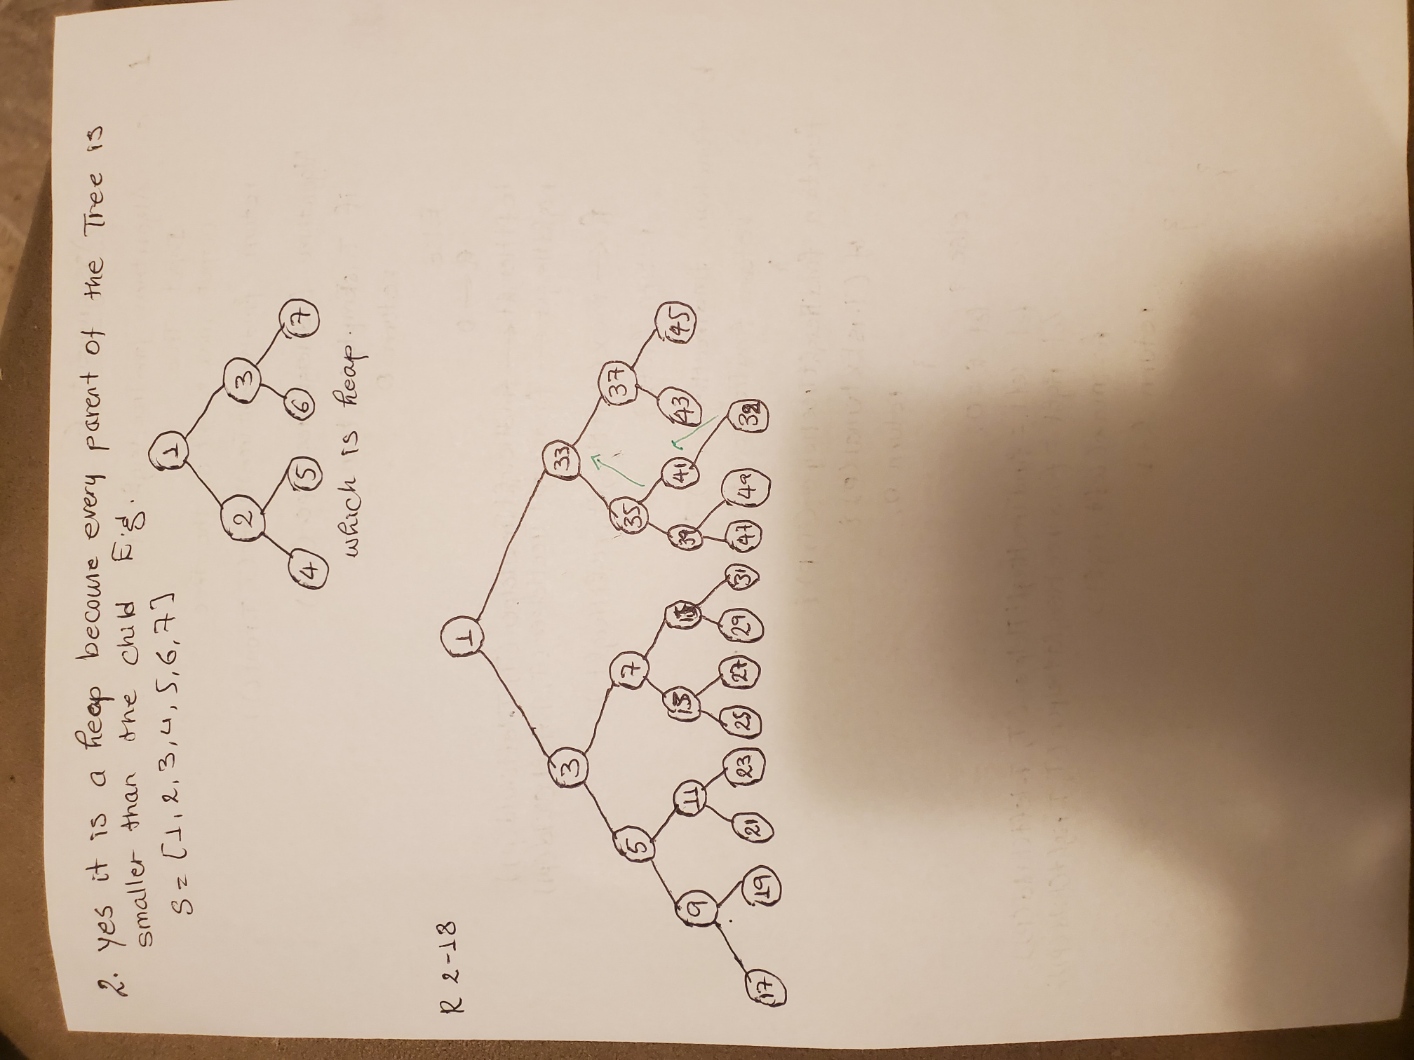 2. yes it is a heap becouse every parent of the Tree is
smaller than the child E.g.
S = [1, 2, 3, 4, 5, 6, 7]
1
2 3
4 5 6 7
which is heap.
R 2-18
1
3 33
5 7 35 37
9 11 13 15 39 41 43 45
17 19 21 23 25 27 29 31 47 49 32